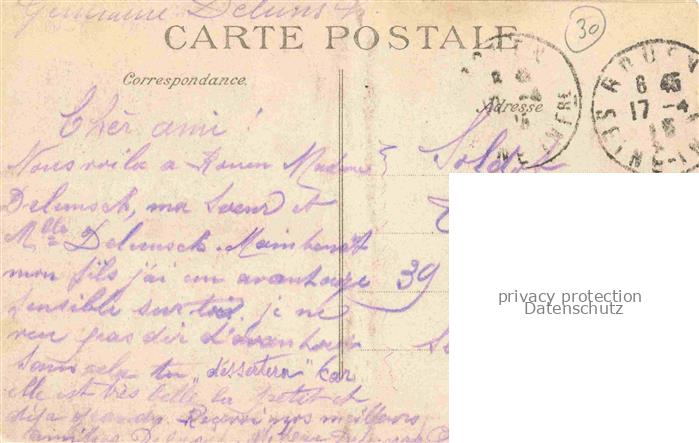 Germaine Delunsch
30
CARTE POSTALE
Correspondance.
Adresse
ROUEN
6 45
17 -4
SEINE-IN
Chèr ami !
Nous voila a Rouen Madame
Delunsch, ma soeur et
Mlle Delunsch. Maintenant
mon fils j'ai un avantage
sensible sur toi. je ne
veu pas dir d'avantage
sans cela tu "désertera" car
elle est très belle la petit et
déja grande. Recevez nos meilleurs
amitiés
Soldat
39
privacy protection
Datenschutz